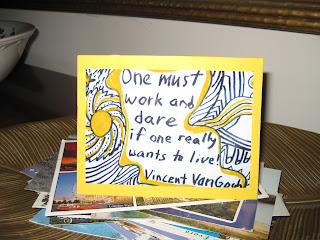 One must
work and
dare
if one really
wants to live!
Vincent VanGogh